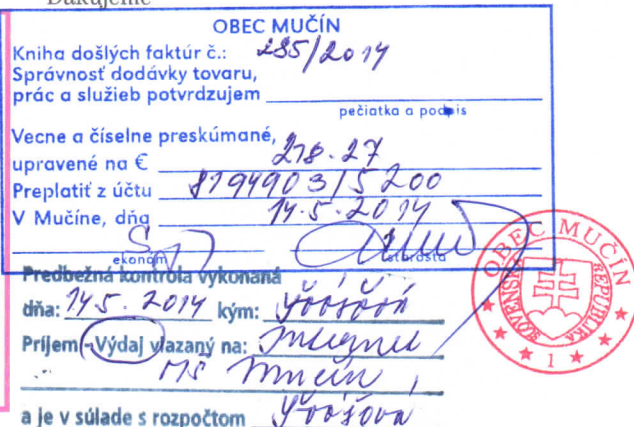 Ďakujeme
OBEC MUČÍN
Kniha došlých faktúr č.: 285/2014
Správnosť dodávky tovaru,
prác a služieb potvrdzujem
pečiatka a podpis
Vecne a číselne preskúmané,
upravené na € 278.27
Preplatiť z účtu 8194903/5200
V Mučíne, dňa 14.5.2014
ekonóm starosta
Predbežná kontrola vykonaná
dňa: 14.5.2014 kým:
Príjem - Výdaj viazaný na:
MŠ Mučín
a je v súlade s rozpočtom
OBEC MUČÍN
SLOVENSKÁ REPUBLIKA
1